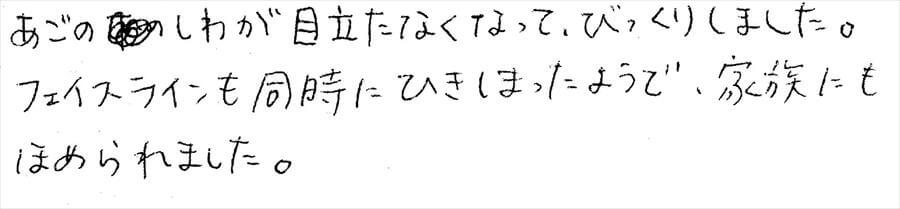 あごののしわが目立たなくなって、びっくりしました。
フェイスラインも同時にひきしまったようで、家族にも
ほめられました。